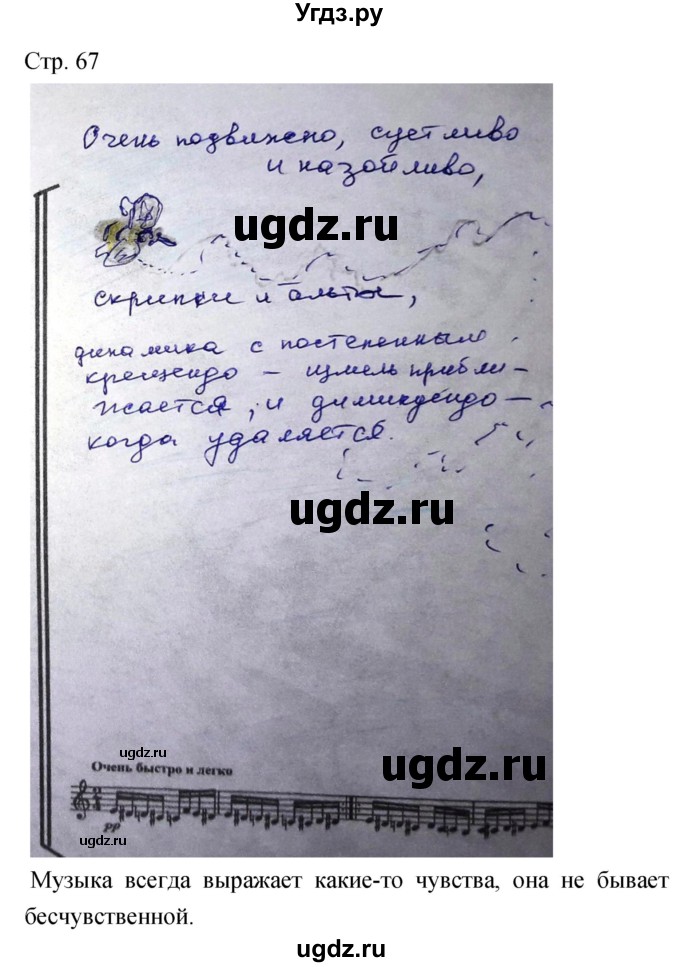 Угдз.ру
Стр. 67
Очень подвижно, суетливо
и назойливо,
ugdz.ru
скрипки и альты,
динамика с постепенным
крещендо – шмель прибли-
жается, и димикдендо –
когда удаляется.
ugdz.ru
ugdz.ru
ugdz.ru
Очень быстро и легко
pp
ugdz.ru
Музыка всегда выражает какие-то чувства, она не бывает
бесчувственной.
ugdz.ru